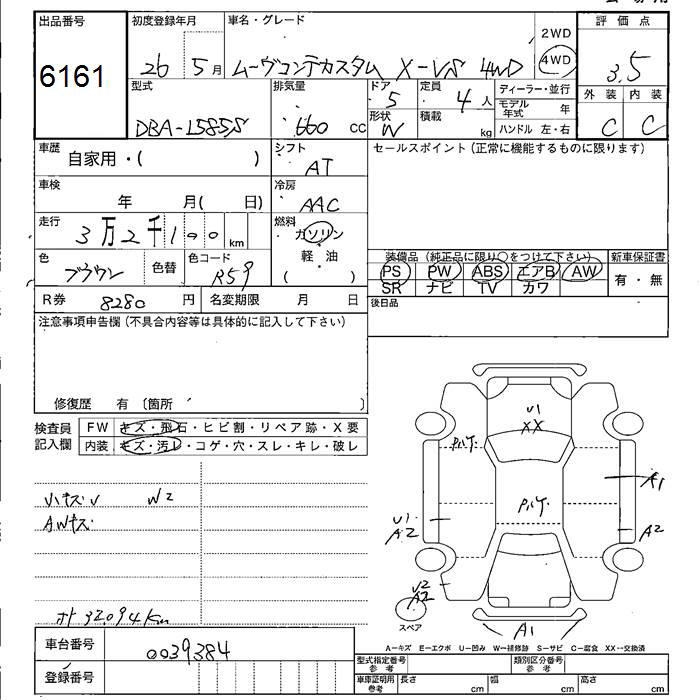 出品番号
6161
初度登録年月
26 5月
車名・グレード
ムーヴコンテカスタム X-VS 4WD
2WD
4WD
評価点
3.5
型式
DBA-L585S
排気量
660 cc
ドア
5
形状
W
定員
4人
積載
kg
ディーラー・並行
モデル年式 年
ハンドル 左・右
外装 内装
C C
車歴
自家用・( )
シフト
AT
セールスポイント(正常に機能するものに限ります)
車検
年 月( 日)
冷房
AAC
走行
3万2千100 km
燃料
ガソリン
軽・油
( )
色
ブラウン
色替
色コード
R59
装備品(純正品に限り○をつけて下さい)
PS PW ABS エアB AW
SR ナビ TV カワ
新車保証書
有・無
R券 8280 円
名変期限 月 日
後日品
注意事項申告欄(不具合内容等は具体的に記入して下さい)
修復歴 有 〔箇所 〕
検査員記入欄
FW キズ・飛石・ヒビ割・リペア跡・X要
内装 キズ・汚レ・コゲ・穴・スレ・キレ・破レ
小キズU W2
AWキズ
メーター 32094km
U1
XX
Pハゲ
Pハゲ
A1
U1
A2
A2
U2
A2
スペア
A1
A-キズ E-エクボ U-凹み W-補修跡 S-サビ C-腐食 XX-交換済
車台番号
0039384
登録番号
型式指定番号
参考
類別区分番号
参考
車庫証明用
参考
長さ cm
幅 cm
高さ cm